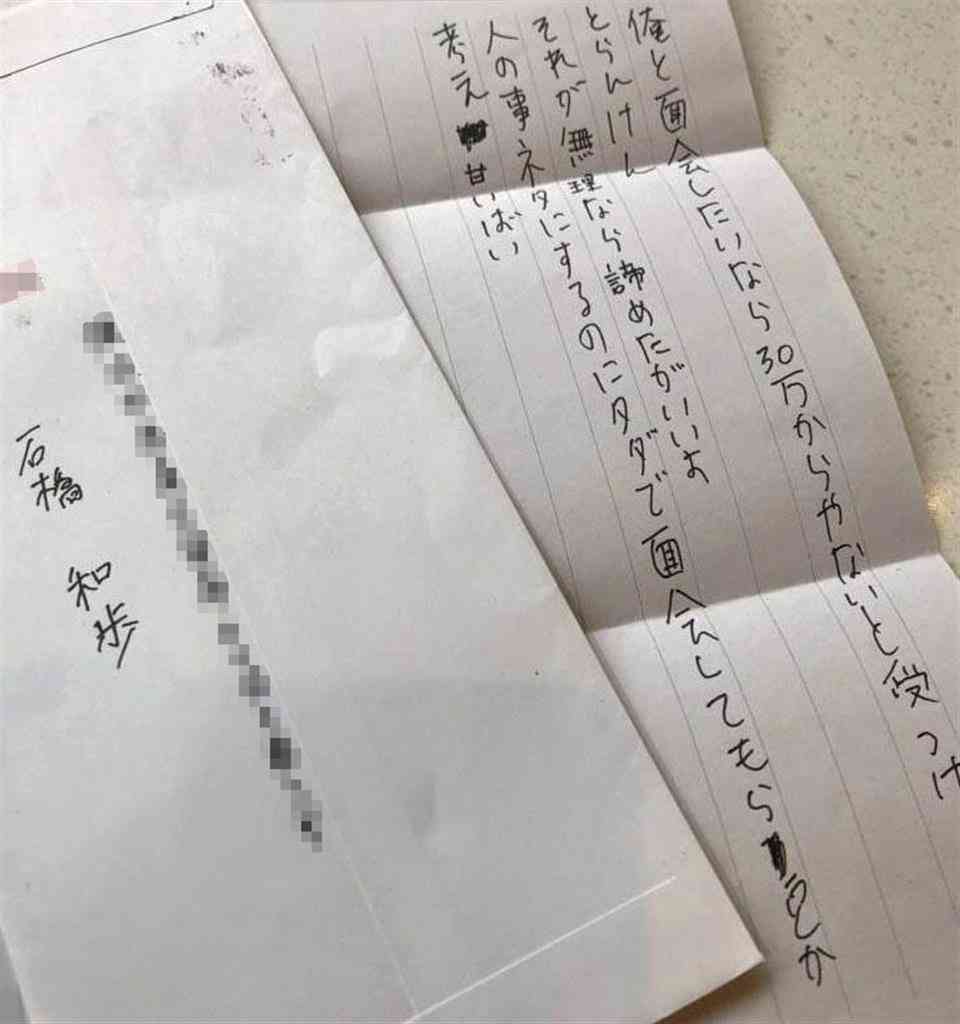 俺と面会したいなら30万からやないと受つけ
とらんけん
それが無理なら諦めたがいいよ
人の事ネタにするのにタダで面会してもらえるとか
考え甘いばい
石橋 和歩